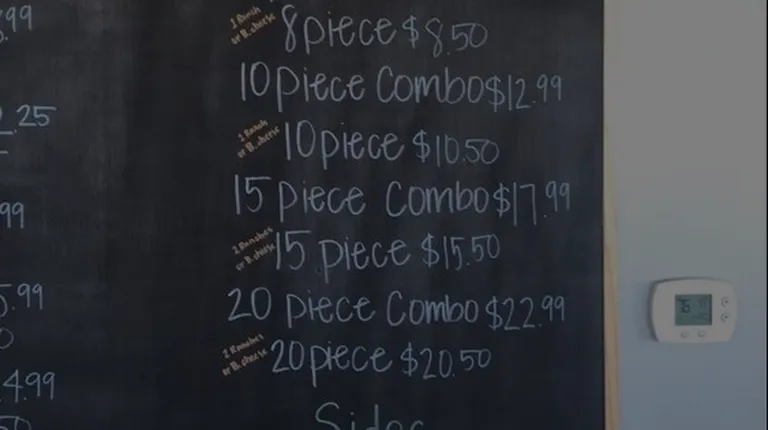 .99
1 Ranch
or B. cheese
8 piece $8.50
10 piece Combo $12.99
2.25
1 Ranch
or B. cheese
10 piece $10.50
15 piece Combo $17.99
99
2 Ranches
or B. cheese
15 piece $15.50
5.99
20 piece Combo $22.99
2 Ranches
or B. cheese
20 piece $20.50
4.99
Sides